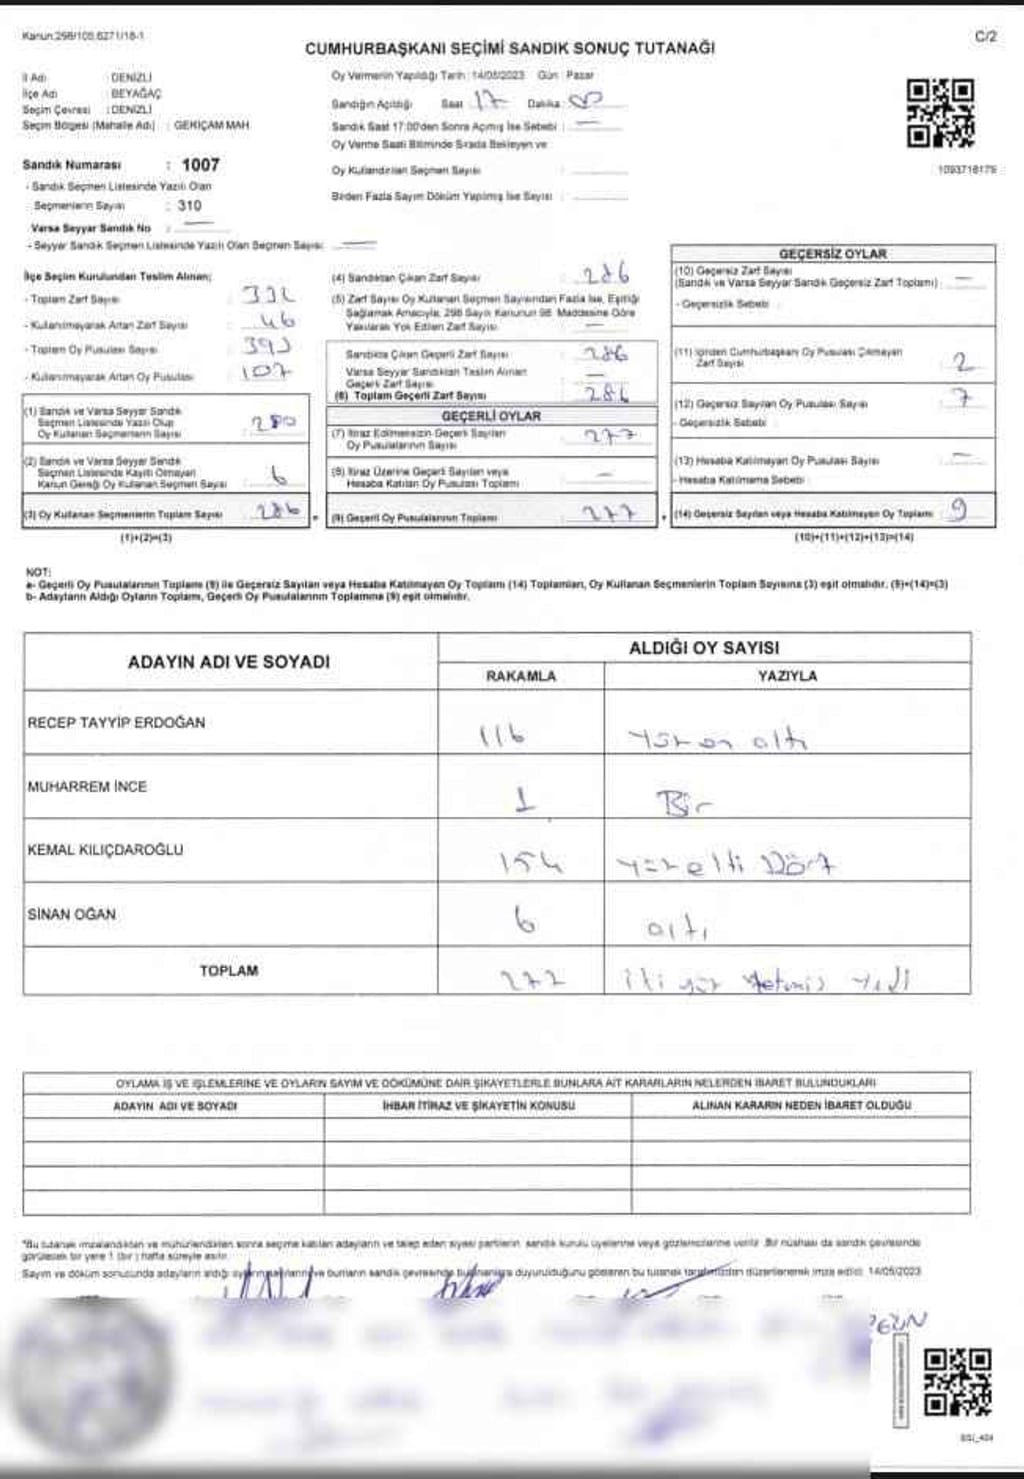 Kanun:298/105,6271/18-1
C/2
CUMHURBAŞKANI SEÇİMİ SANDIK SONUÇ TUTANAĞI
İl Adı : DENİZLİ
İlçe Adı : BEYAĞAÇ
Seçim Çevresi : DENİZLİ
Seçim Bölgesi (Mahalle Adı) : GERİÇAM MAH
Sandık Numarası : 1007
- Sandık Seçmen Listesinde Yazılı Olan
Seçmenlerin Sayısı : 310
Varsa Seyyar Sandık No :
- Seyyar Sandık Seçmen Listesinde Yazılı Olan Seçmen Sayısı:
Oy Vermenin Yapıldığı Tarih :14/05/2023 Gün : Pazar
Sandığın Açıldığı Saat :17 Dakika :
Sandık Saat 17:00'den Sonra Açmış İse Sebebi :
Oy Verme Saati Bitiminde Sırada Bekleyen ve
Oy Kullandırılan Seçmen Sayısı :
Birden Fazla Sayım Döküm Yapılmış İse Sayısı :
1093718179
İlçe Seçim Kurulundan Teslim Alınan;
- Toplam Zarf Sayısı : 332
- Kullanılmayarak Artan Zarf Sayısı : 46
- Toplam Oy Pusulası Sayısı : 393
- Kullanılmayarak Artan Oy Pusulası : 107
(1) Sandık ve Varsa Seyyar Sandık
Seçmen Listesinde Yazılı Olup
Oy Kullanan Seçmenlerin Sayısı : 280
(2) Sandık ve Varsa Seyyar Sandık
Seçmen Listesinde Kayıtlı Olmayan
Kanun Gereği Oy Kullanan Seçmen Sayısı : 6
(3) Oy Kullanan Seçmenlerin Toplam Sayısı : 286
(1)+(2)=(3)
(4) Sandıktan Çıkan Zarf Sayısı : 286
(5) Zarf Sayısı Oy Kullanan Seçmen Sayısından Fazla İse, Eşitliği
Sağlamak Amacıyla, 298 Sayılı Kanunun 98. Maddesine Göre
Yakılarak Yok Edilen Zarf Sayısı :
Sandıkta Çıkan Geçerli Zarf Sayısı : 286
Varsa Seyyar Sandıktan Teslim Alınan
Geçerli Zarf Sayısı :
(6) Toplam Geçerli Zarf Sayısı : 286
GEÇERLİ OYLAR
(7) İtiraz Edilmeksizin Geçerli Sayılan
Oy Pusulalarının Sayısı : 277
(8) İtiraz Üzerine Geçerli Sayılan veya
Hesaba Katılan Oy Pusulası Toplamı :
(9) Geçerli Oy Pusulalarının Toplamı : 277
GEÇERSİZ OYLAR
(10) Geçersiz Zarf Sayısı
(Sandık ve Varsa Seyyar Sandık Geçersiz Zarf Toplamı) :
- Geçersizlik Sebebi :
(11) İçinden Cumhurbaşkanı Oy Pusulası Çıkmayan
Zarf Sayısı : 2
(12) Geçersiz Sayılan Oy Pusulası Sayısı : 7
- Geçersizlik Sebebi :
(13) Hesaba Katılmayan Oy Pusulası Sayısı :
- Hesaba Katılmama Sebebi :
(14) Geçersiz Sayılan veya Hesaba Katılmayan Oy Toplamı : 9
(10)+(11)+(12)+(13)=(14)
NOT:
a- Geçerli Oy Pusulalarının Toplamı (9) ile Geçersiz Sayılan veya Hesaba Katılmayan Oy Toplamı (14) Toplamları, Oy Kullanan Seçmenlerin Toplam Sayısına (3) eşit olmalıdır. (9)+(14)=(3)
b- Adayların Aldığı Oyların Toplamı, Geçerli Oy Pusulalarının Toplamına (9) eşit olmalıdır.
ADAYIN ADI VE SOYADI ALDIĞI OY SAYISI
RAKAMLA YAZIYLA
RECEP TAYYİP ERDOĞAN 116 yüz on altı
MUHARREM İNCE 1 Bir
KEMAL KILIÇDAROĞLU 154 yüz elli Dört
SİNAN OĞAN 6 altı
TOPLAM 277 iki yüz yetmiş yedi
OYLAMA İŞ VE İŞLEMLERİNE VE OYLARIN SAYIM VE DÖKÜMÜNE DAİR ŞİKAYETLERLE BUNLARA AİT KARARLARIN NELERDEN İBARET BULUNDUKLARI
ADAYIN ADI VE SOYADI İHBAR İTİRAZ VE ŞİKAYETİN KONUSU ALINAN KARARIN NEDEN İBARET OLDUĞU
*Bu tutanak imzalandıktan ve mühürlendikten sonra seçime katılan adayların ve talep eden siyasi partilerin sandık kurulu üyelerine veya gözlemcilerine verilir. Bir nüshası da sandık çevresinde
görülecek bir yere 1 (bir) hafta süreyle asılır.
Sayım ve döküm sonucunda adayların aldığı oyların sayılarını ve bunların sandık çevresinde bulunanlara duyurulduğunu gösteren bu tutanak tarafımızdan düzenlenerek imza edildi. 14/05/2023